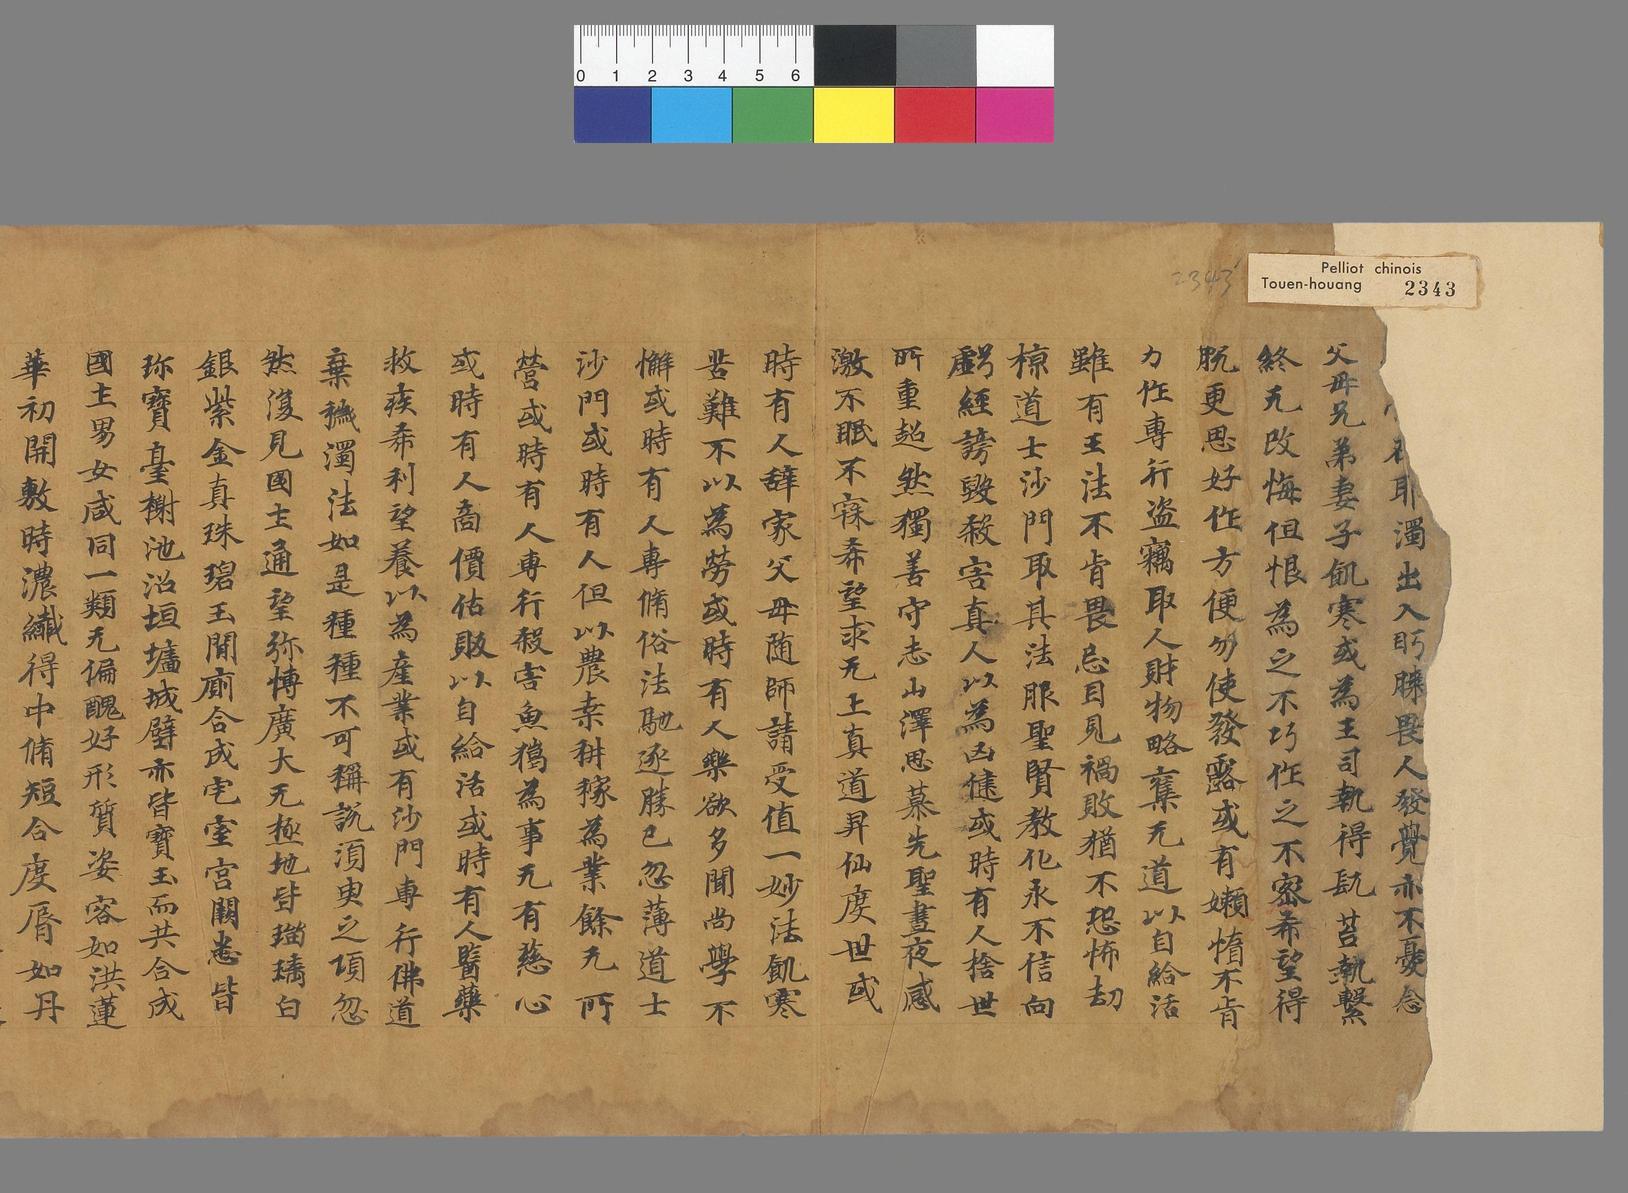 0 1 2 3 4 5 6
2343
Pelliot chinois
Touen-houang 2343
耶濁出入眄睞畏人發覺亦不憂念
父母兄弟妻子飢寒或為王司執得骯苔執繫
終无改悔但恨為之不巧作之不密希望得
脫更思好作方便勿使發露或有嬾惰不肯
力作專行盜竊取人財物略棄无道以自給活
雖有王法不肯畏忌目見禍敗猶不恐怖劫
掠道士沙門取其法服聖賢教化永不信向
虧經謗毀殺害真人以為凶健或時有人捨世
所重超然獨善守志山澤思慕先聖晝夜感
激不眠不寐希望求无上真道昇仙度世或
時有人辭家父母随師請受值一妙法飢寒
苦難不以為勞或時有人樂欲多聞尚學不
懈或時有人專脩俗法馳逐勝已忽薄道士
沙門或時有人但以農桒耕稼為業餘无所
營或時有人專行殺害魚獦為事无有慈心
或時有人啇價估販以自給活或時有人醫藥
救疾希利望養以為產業或有沙門專行佛道
棄穢濁法如是種種不可稱說湏臾之頃忽
然復見國土通望弥博廣大无極地皆瑙璹白
銀紫金真珠碧玉間廁合成宅室宮闕悉皆
珎寶臺榭池沼垣墉城壁亦皆寶玉而共合成
國土男女咸同一類无偏醜好形質姿容如洪蓮
華初開敷時濃纖得中脩短合度脣如丹